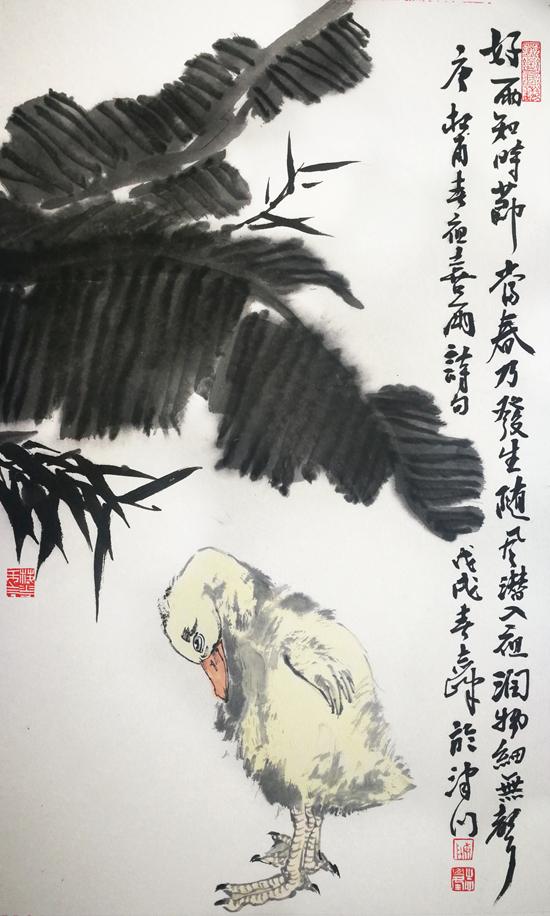 好雨知時節當春乃發生随風潛入夜潤物細無聲
唐杜甫春夜喜雨詩句
戊戌春於津门